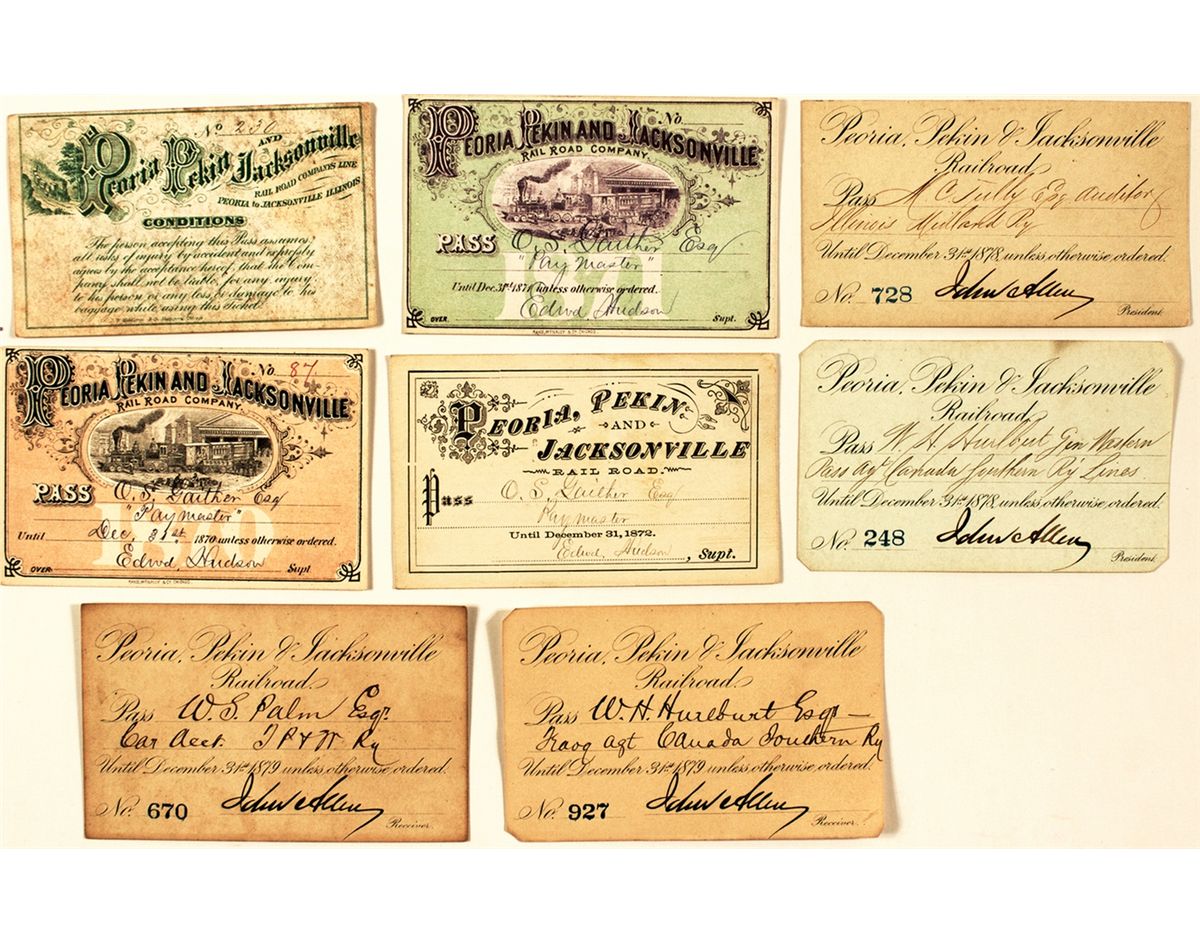 No 230
Peoria Pekin AND Jacksonville
RAIL ROAD COMPANYS LINE
PEORIA to JACKSONVILLE ILLINOIS
CONDITIONS
The person accepting this Pass assumes
all risks of injury by accident and expressly
agrees by the acceptance hereof, that the Com-
pany shall not be liable, for any injury
to his person or any loss or damage to his
baggage while using this Ticket.
No.
PEORIA PEKIN AND JACKSONVILLE
RAIL ROAD COMPANY.
PASS O. S. Gaither Esq
"Pay Master"
1871
Until Dec. 31st 1871 unless otherwise ordered.
Edwd Hudson
OVER. Supt.
RAND, McNALLY & CO. CHICAGO.
Peoria, Pekin & Jacksonville
Railroad
Pass M. C. Tully Esq Auditor
Illinois Midland Ry
Until December 31st 1878, unless otherwise ordered.
No. 728 John Allen
President.
No 87
PEORIA PEKIN AND JACKSONVILLE
RAIL ROAD COMPANY.
PASS O. S. Gaither Esq
"Pay Master"
1870
Until Dec. 31st 1870 unless otherwise ordered.
Edwd Hudson
OVER Supt
RAND, McNALLY & CO. CHICAGO.
PEORIA, PEKIN
AND
JACKSONVILLE
RAIL ROAD.
Pass O. S. Gaither Esq
Paymaster
Until December 31, 1872.
Edwd. Hudson, Supt.
Peoria, Pekin & Jacksonville
Railroad
Pass W. H. Hurlbut Gen Western
Pass Ag Canada Southern Ry Lines
Until December 31st 1878, unless otherwise ordered.
No. 248 John Allen
President.
Peoria, Pekin & Jacksonville
Railroad.
Pass W. S. Palm Esqr
Car Acct. T P & W Ry
Until December 31st 1879 unless otherwise ordered.
No. 670 John Allen
Receiver.
Peoria, Pekin & Jacksonville
Railroad.
Pass W. H. Hurlburt Esqr
Travg Agt Canada Southern Ry
Until December 31st 1879 unless otherwise ordered.
No. 927 John Allen
Receiver.